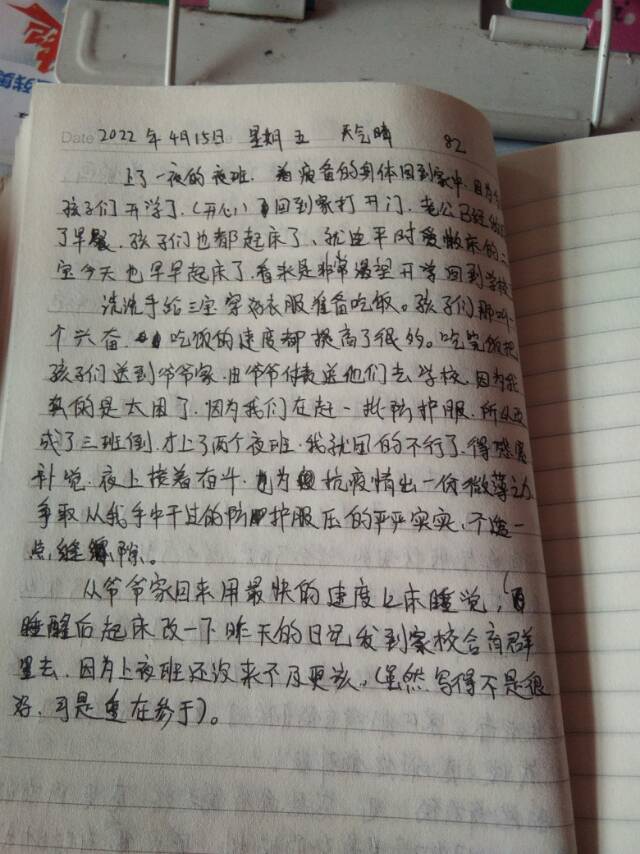 Date 2022年4月15日 星期五 天气晴 82
上了一夜的夜班.着疲惫的身体回到家中.因为今
孩子们开学了.(开心)回到家打开门.老公已经做好
了早餐.孩子们也都起床了、就连平时爱懒床的二
宝今天也早早起床了.看来是非常渴望开学回到学校
洗洗手给三宝穿好衣服准备吃饭。孩子们那叫一
个兴奋.吃饭的速度都提高了很多。吃完饭把
孩子们送到爷爷家.由爷爷代表送他们去学校.因为我
真的是太困了.因为我们在赶一批防护服.所以改
成了三班倒.才上了两个夜班.我就困的不行了.得
补觉.夜上接着奋斗.为抗疫情出一份微薄之力
争取从我手中干过的防护服压的严严实实,不造一
点缝隙。
从爷爷家回来用最快的速度上床睡觉,
睡醒后起床改一下昨天的日记发到家校合育群
里去.因为上夜班还没来不及更该,(虽然写得不是很
好.可是重在参于)。